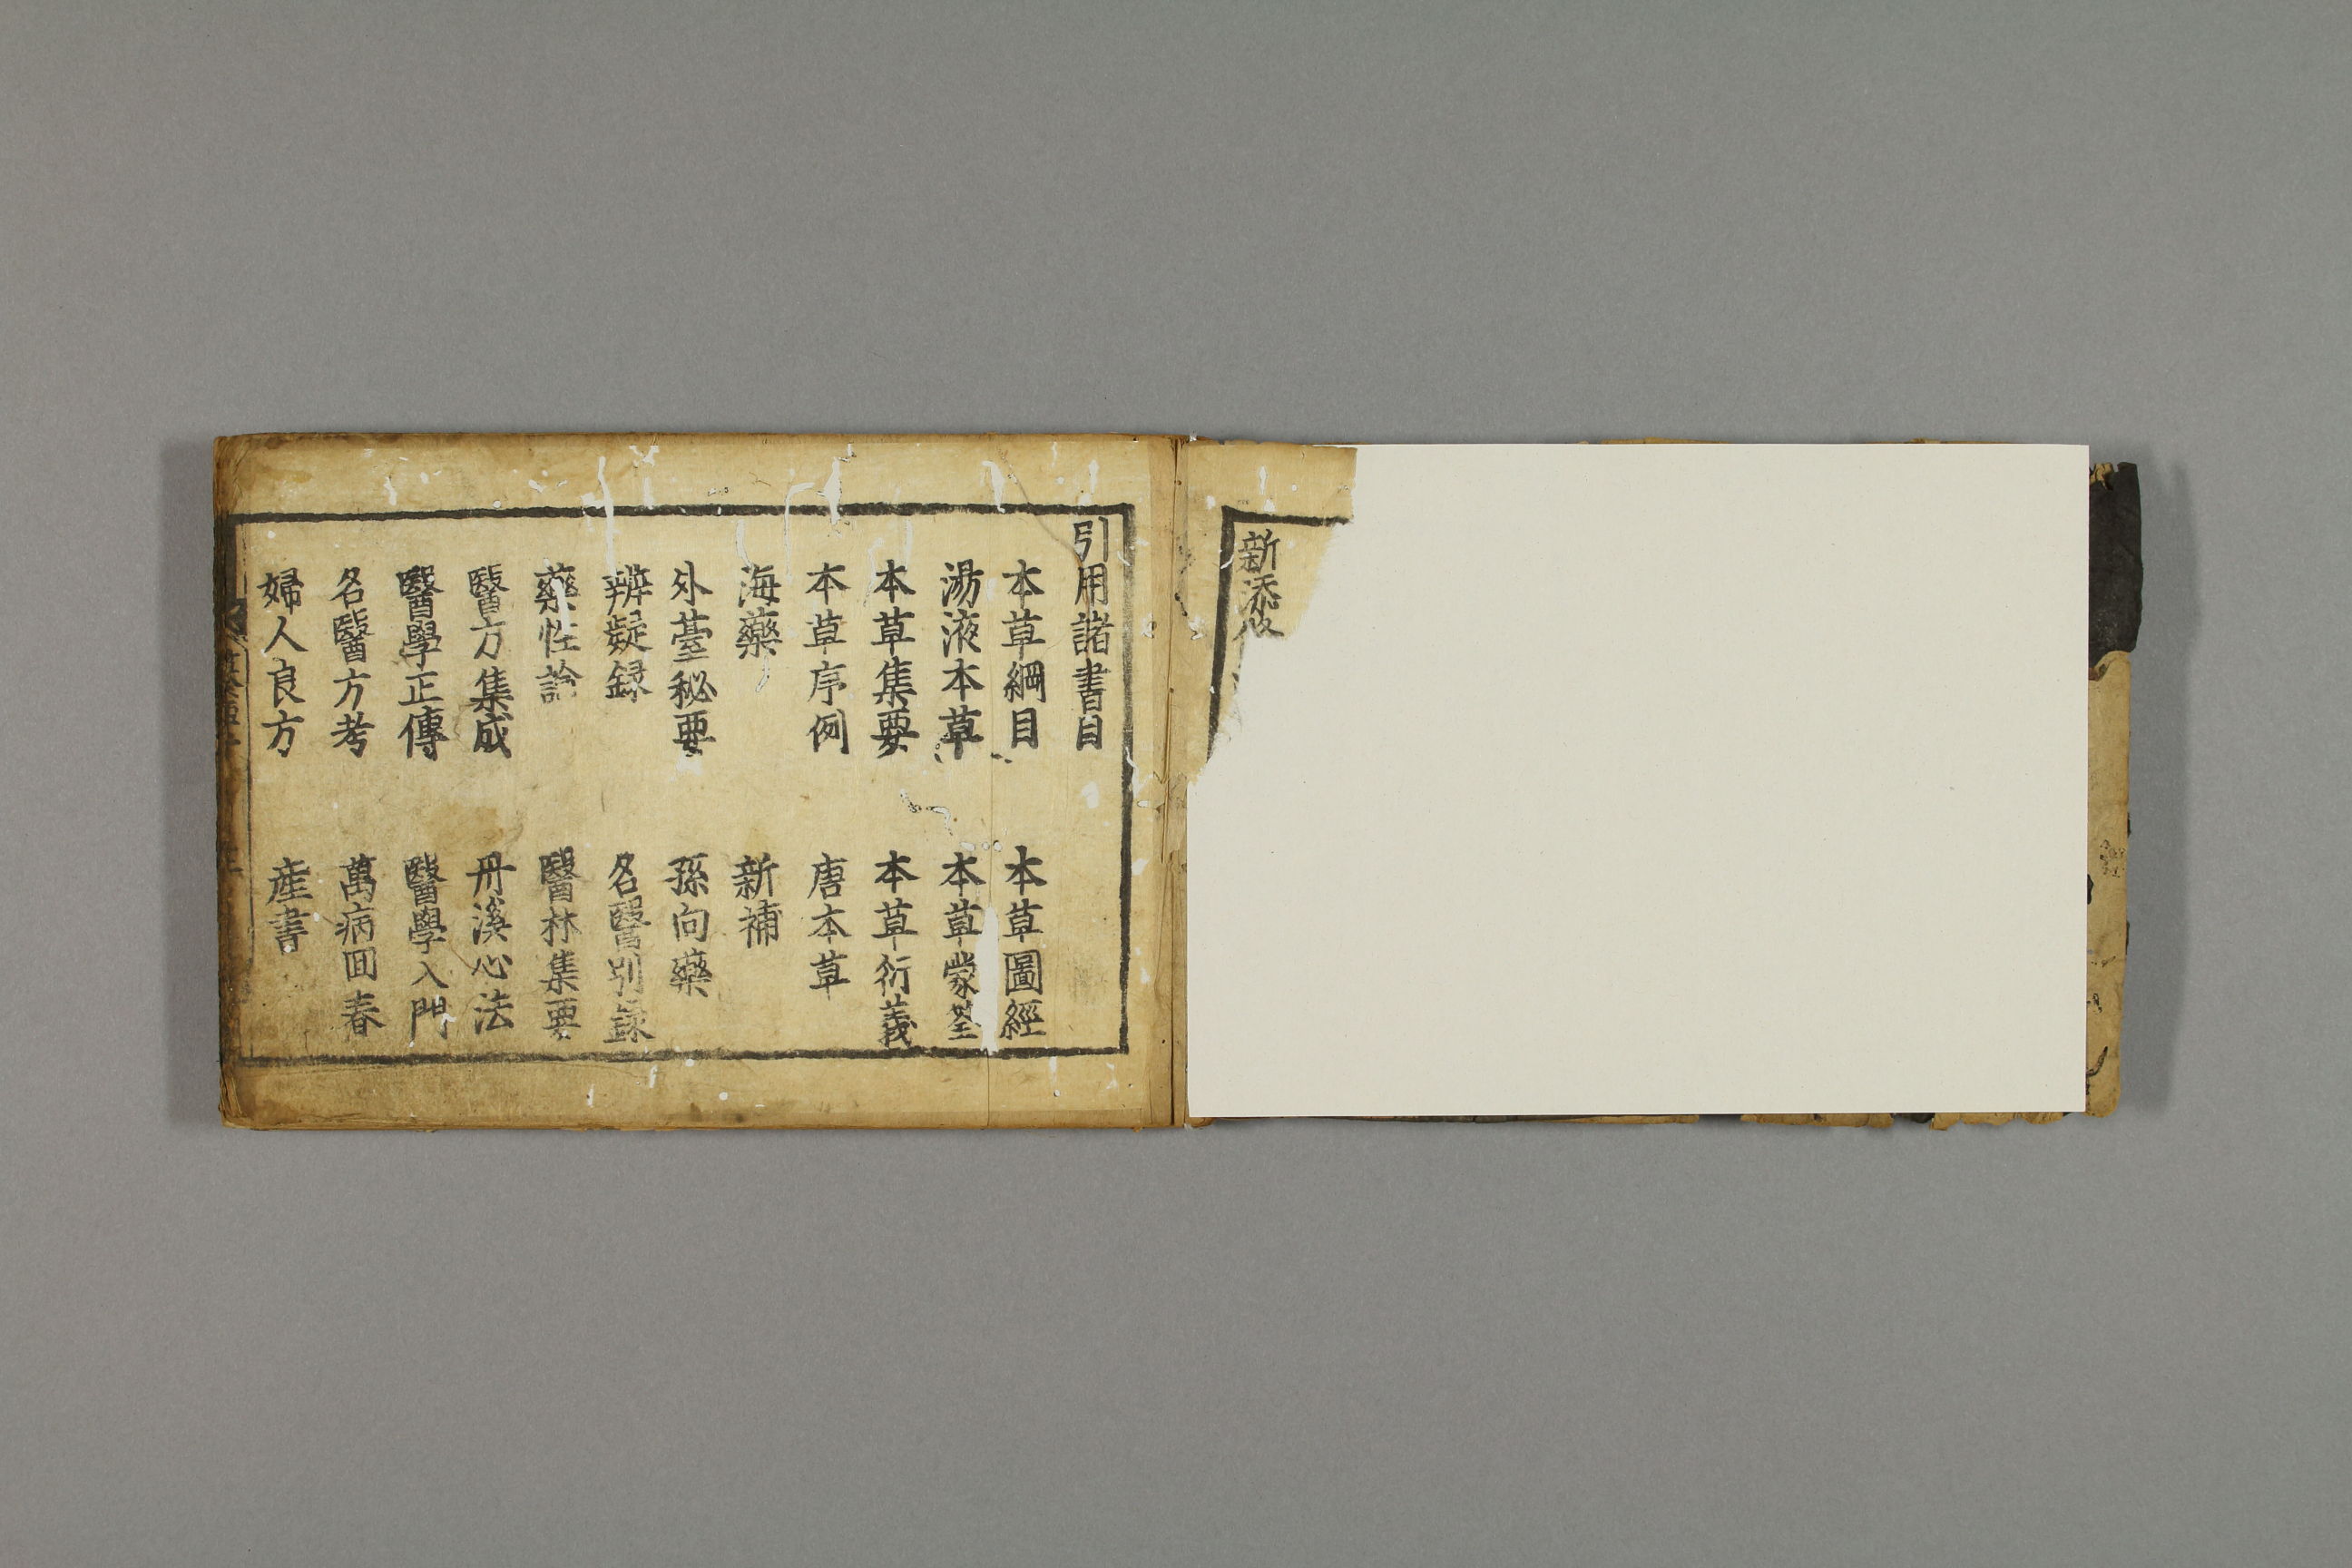 新添
引用諸書目
本草綱目 本草圖經
湯液本草 本草蒙筌
本草集要 本草衍義
本草序例 唐本草
海藥 新補
外薹秘要 孫向藥
辨疑録 名醫別録
藥性論 醫林集要
醫方集成 丹溪心法
醫學正傳 醫學入門
名醫方考 萬病回春
婦人良方 産書